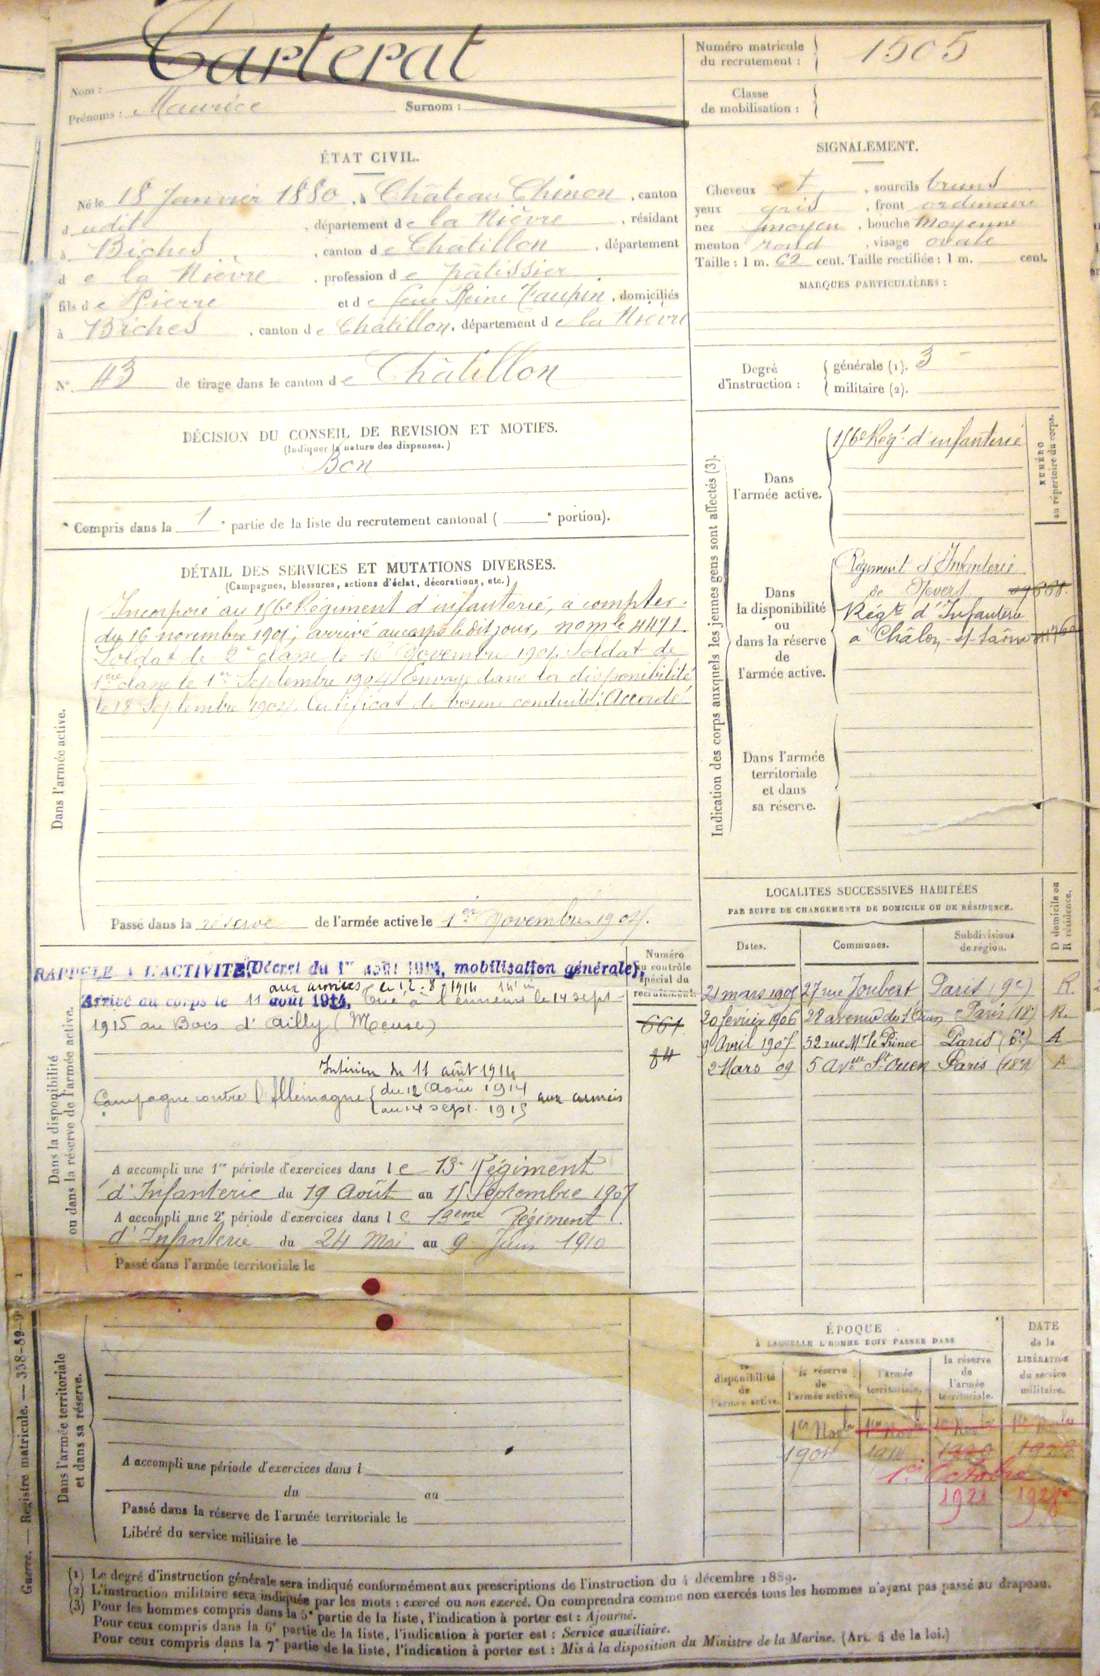 Nom : Tarterat
Prénoms : Maurice Surnom :
Numéro matricule
du recrutement : 1505
Classe
de mobilisation :
ÉTAT CIVIL.
Né le 18 Janvier 1880, à Château Chinon, canton
d udit, département de la Nièvre, résidant
à Biches, canton de Chatillon, département
de la Nièvre, profession de pâtissier
fils de Pierre et de feue Reine Taupin, domiciliés
à Biches, canton de Châtillon, département de la Nièvre
N° 43 de tirage dans le canton de Châtillon
SIGNALEMENT.
Cheveux et, sourcils bruns
yeux gris, front ordinaire
nez moyen, bouche moyenne
menton rond, visage ovale
Taille : 1 m. 62 cent. Taille rectifiée : 1 m. cent.
MARQUES PARTICULIÈRES :
Degré
d'instruction :
générale (1). 3
militaire (2).
DÉCISION DU CONSEIL DE REVISION ET MOTIFS.
(Indiquer la nature des dispenses.)
Bon
Compris dans la 1e partie de la liste du recrutement cantonal ( e portion).
DÉTAIL DES SERVICES ET MUTATIONS DIVERSES.
(Campagnes, blessures, actions d'éclat, décorations, etc.)
Dans l'armée active.
Incorporé au 156e Régiment d'infanterie, à compter
du 16 novembre 1901, arrivé au corps le dit jour, n° mle 4471.
Soldat de 2e classe le 16 Novembre 1901. Soldat de
1ère classe le 1er Septembre 1904. Envoyé dans la disponibilité
le 18 Septembre 1904. Certificat de bonne conduite : Accordé
Passé dans la réserve de l'armée active le 1er Novembre 1904.
Indication des corps auxquels les jeunes gens sont affectés (3).
NUMÉRO
au répertoire du corps.
Dans
l'armée active.
156e Régt d'infanterie
Dans
la disponibilité
ou
dans la réserve
de
l'armée active.
Régiment d'Infanterie
de Nevers
Régt d'Infanterie
a Châlon s/ Saône
Dans l'armée
territoriale
et dans
sa réserve.
LOCALITES SUCCESSIVES HABITÉES
PAR SUITE DE CHANGEMENTS DE DOMICILE OU DE RÉSIDENCE.
Dates. Communes. Subdivisions de région. D domicile ou R résidence.
21 mars 1905 27 rue Joubert Paris (9e) R.
20 février 1906 28 avenue de St Ouen Paris (18e) R.
9 Avril 1907 52 rue Mr le Prince Paris (6e) A
2 Mars 09 5 Avue St Ouen Paris (18e) A
Dans la disponibilité
ou dans la réserve de l'armée active.
Numéro
au contrôle
spécial du
recrutement.
661
84
RAPPELÉ A L'ACTIVITÉ (Décret du 1er août 1914, mobilisation générale),
aux armées le 12-8-1914
Arrivé au corps le 11 août 1914, Tué à l'ennemi le 14 sept
1915 au Bois d'Ailly (Meuse)
Intérieur du 11 août 1914
Campagne contre l'Allemagne du 12 Août 1914
au 14 sept. 1915 aux armées
A accompli une 1re période d'exercices dans le 13e Régiment
d'Infanterie du 19 Août au 15 Septembre 1907
A accompli une 2e période d'exercices dans le 13ème Régiment
d'Infanterie du 24 Mai au 9 Juin 1910
Passé dans l'armée territoriale le
Dans l'armée territoriale
et dans sa réserve.
A accompli une période d'exercices dans l
du au
Passé dans la réserve de l'armée territoriale le
Libéré du service militaire le
ÉPOQUE
À LAQUELLE L'HOMME DOIT PASSER DANS
la disponibilité de l'armée active.
la réserve de l'armée active.
l'armée territoriale.
la réserve de l'armée territoriale.
DATE de la LIBÉRATION du service militaire.
1er Novbre 1er Novbre 1er Novbre 1er Novbre
1904 1914 1920
1er Octobre
1921 1928
Guerre. — Registre matricule. — 358-89-9
(1) Le degré d'instruction générale sera indiqué conformément aux prescriptions de l'instruction du 4 décembre 1889.
(2) L'instruction militaire sera indiquée par les mots : exercé ou non exercé. On comprendra comme non exercés tous les hommes n'ayant pas passé au drapeau.
(3) Pour les hommes compris dans la 5e partie de la liste, l'indication à porter est : Ajourné.
Pour ceux compris dans la 6e partie de la liste, l'indication à porter est : Service auxiliaire.
Pour ceux compris dans la 7e partie de la liste, l'indication à porter est : Mis à la disposition du Ministre de la Marine. (Art. 4 de la loi.)